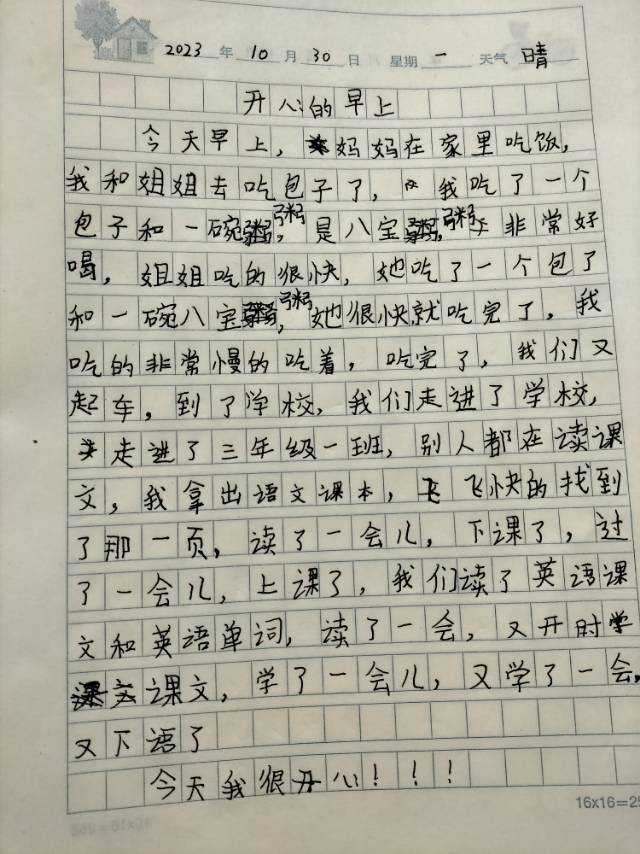 2023 年 10 月 30 日 星期 一 天气 晴
开心的早上
今天早上，妈妈在家里吃饭，
我和姐姐去吃包子了，我吃了一个
包子和一碗粥，是八宝粥，非常好
喝，姐姐吃的很快，她吃了一个包了
和一碗八宝粥，她很快就吃完了，我
吃的非常慢的吃着，吃完了，我们又
起车，到了学校，我们走进了学校，
走进了三年级一班，别人都在读课
文，我拿出语文课本，飞快的找到
了那一页，读了一会儿，下课了，过
了一会儿，上课了，我们读了英语课
文和英语单词，读了一会，又开时学
课文，学了一会儿，又学了一会，
又下语了
今天我很开心！！！
16x16=25